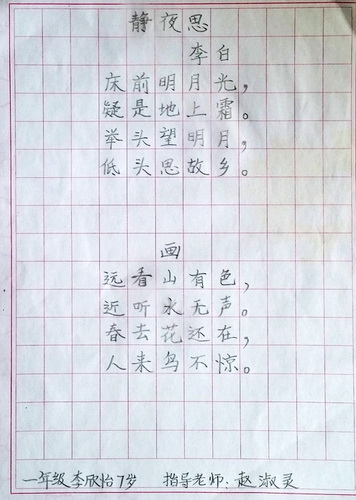 静夜思
李白
床前明月光，
疑是地上霜。
举头望明月，
低头思故乡。
画
远看山有色，
近听水无声。
春去花还在，
人来鸟不惊。
一年级 李欣怡 7岁 指导老师．赵淑灵